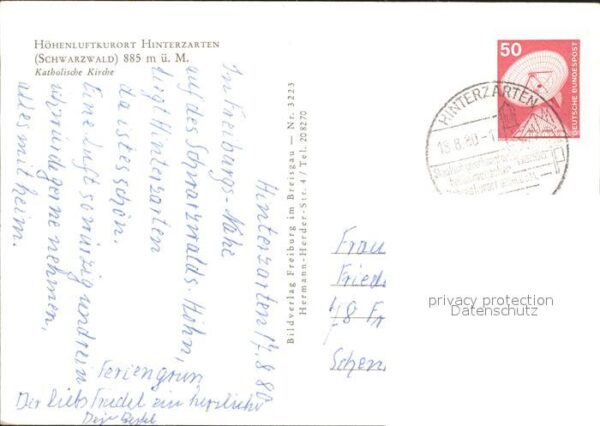 HÖHENLUFTKURORT HINTERZARTEN
(SCHWARZWALD) 885 m ü. M.
Katholische Kirche
Hinterzarten 17.8.80
In Freiburgs-Nähe
auf des Schwarzwalds-Höhn,
liegt Hinterzarten
da ist es schön.
Eine Luft so würzig und rein
ich würde gerne nehmen,
alles mit heim.
Feriengruß
Der liebs Friedel ein herzliche
Bildverlag Freiburg im Breisgau — Nr. 3223
Hermann-Herder-Str. 4 / Tel. 208270
50
DEUTSCHE BUNDESPOST
HINTERZARTEN
18.8.80-1
Frau
Fried
78 Fr
Schen
privacy protection
Datenschutz